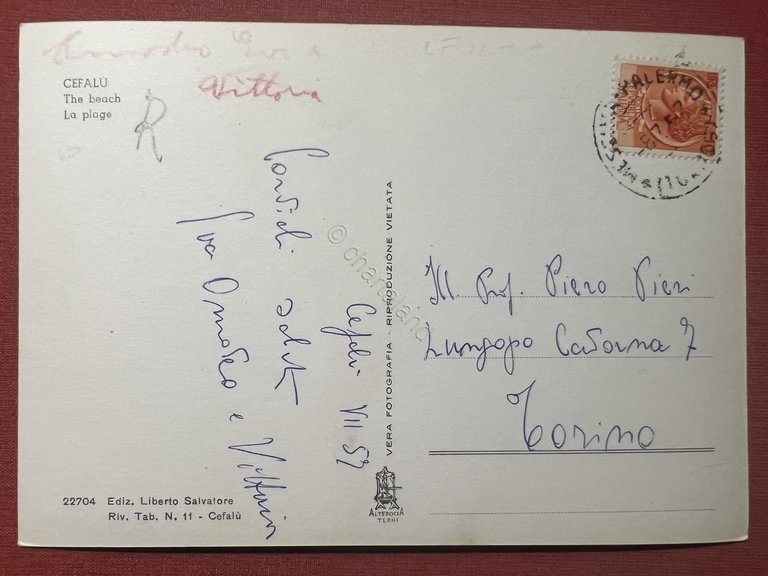 Vittoria
CEFALÙ
The beach
La plage
R
Cordiali saluti
Eva Omodeo e Vittoria
Cefalù VII 57
VERA FOTOGRAFIA - RIPRODUZIONE VIETATA
Ill. Prof. Piero Pieri
Lungopo Cadorna 7
Torino
PALERMO
22704 Ediz. Liberto Salvatore
Riv. Tab. N. 11 - Cefalù
ALTEROCCA
TERNI